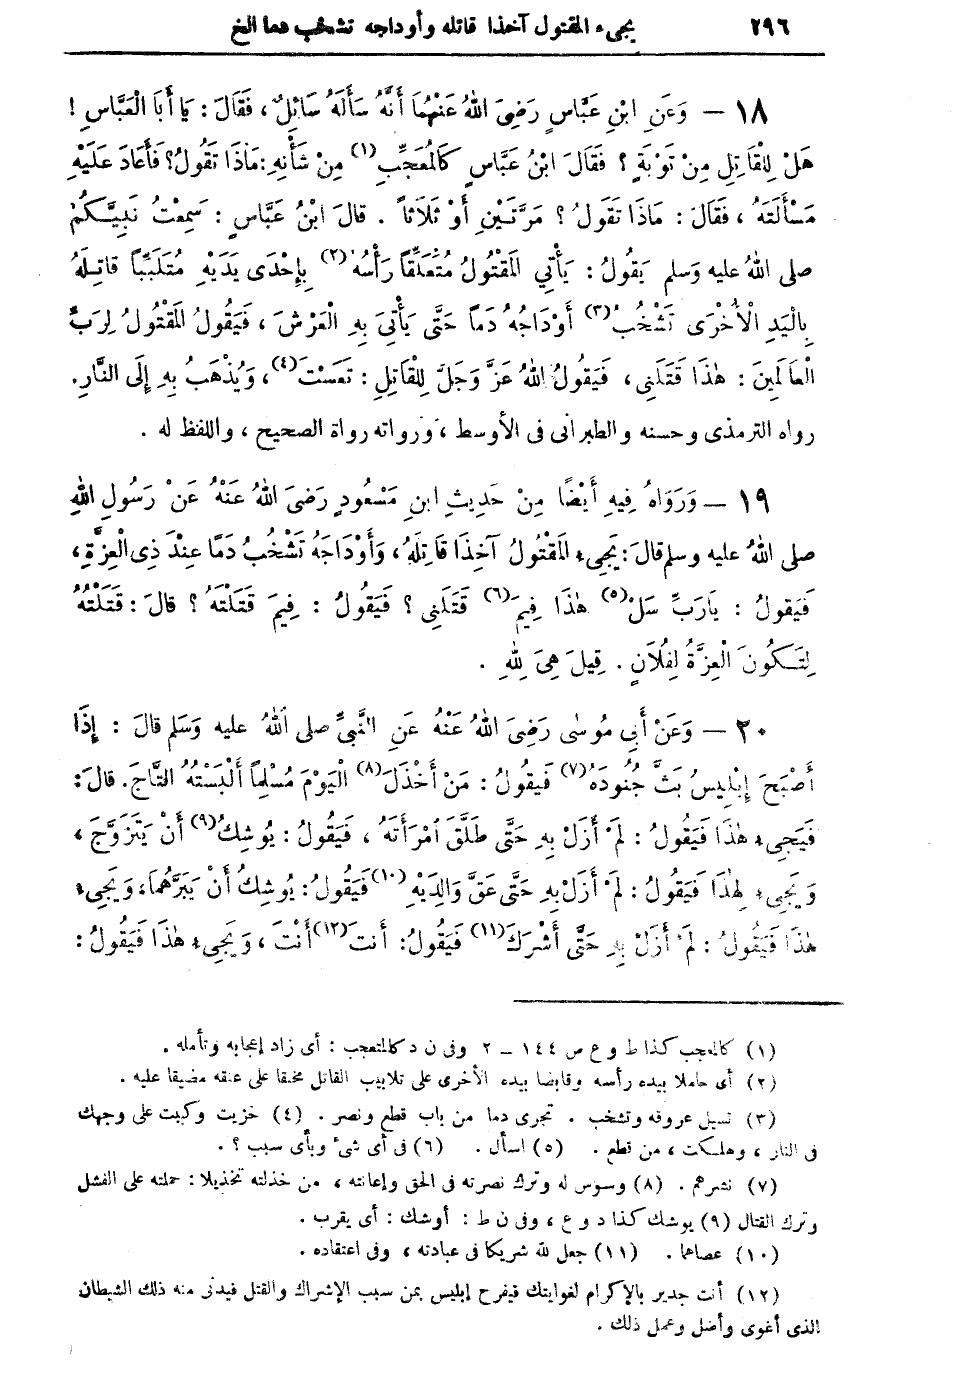 ٢٩٦ يجىء المقتول آخذا قاتله وأوداجه تشخب دما الخ
١٨ — وَعَنِ ابْنِ عَبَّاسٍ رَضِىَ اللهُ عَنْهُمَا أَنَّهُ سَأَلَهُ سَائِلٌ ، فَقَالَ : يَا أَبَا الْعَبَّاسِ !
هَلْ لِلْقَاتِلِ مِنْ تَوْبَةٍ ؟ فَقَالَ ابْنُ عَبَّاسٍ كَالْمُعَجِّبِ (١) مِنْ شَأْنِهِ : مَاذَا تَقُولُ؟ فَأَعَادَ عَلَيْهِ
مَسْأَلَتَهُ ، فَقَالَ : مَاذَا تَقُولُ ؟ مَرَّتَيْنِ أَوْ ثَلَاثاً . قالَ ابْنُ عَبَّاسٍ : سَمِعْتُ نَبِيَّكُمْ
صلى اللهُ عليه وَسلم يَقُولُ : يَأْتِي الْمَقْتُولُ مُتَعَلِّقاً رَأْسُهُ (٢) بِإِحْدَى يَدَيْهِ مُتَلَبِّباً قاتِلَهُ
بِالْيَدِ الْأُخْرَى تَشْخُبُ (٣) أَوْدَاجُهُ دَماً حَتَّى يَأْتِىَ بِهِ الْعَرْشَ ، فَيَقُولُ الْمَقْتُولُ لِرَبِّ
الْعَالَمِينَ : هٰذَا قَتَلَنِى ، فَيَقُولُ اللهُ عَزَّ وَجَلَّ لِلْقَاتِلِ : تَعَسْتَ (٤) ، وَيُذْهَبُ بِهِ إِلَى النَّارِ.
رواه الترمذى وحسنه والطبرانى فى الأوسط ، ورواته رواة الصحيح ، واللفظ له .
١٩ — وَرَوَاهُ فِيهِ أَيْضًا مِنْ حَدِيثِ ابنِ مَسْعُودٍ رَضِىَ اللهُ عَنْهُ عَنْ رَسُولِ اللهِ
صلى اللهُ عليه وسلم قالَ : يَجِىءُ الْمَقْتُولُ آخِذَا قَاتِلَهُ ، وَأَوْدَاجُهُ تَشْخُبُ دَمًا عِنْدَ ذِى الْعِزَّةِ ،
فَيَقولُ : يَارَبِّ سَلْ (٥) هٰذَا فِيمَ (٦) قَتَلَنِى ؟ فَيَقُولُ : فِيمَ قَتَلْتَهُ ؟ قالَ : قَتَلْتُهُ
لِتَكُونَ الْعِزَّةُ لِفُلَانٍ . قِيلَ هِىَ لِلهِ .
٢٠ — وَعَنْ أَبِي مُوسٰى رَضِىَ اللهُ عَنْهُ عَنِ النَّبِىِّ صلى اللهُ عليه وَسَلم قالَ : إِذَا
أَصْبَحَ إِبْلِيسُ بَثَّ جُنُودَهُ (٧) فَيَقُولُ : مَنْ أَخْذَلَ (٨) الْيَوْمَ مُسْلِماً أَلْبَسْتُهُ التَّاجَ . قالَ :
فَيَجِىءُ هٰذَا فَيَقُولُ : لَمْ أَزَلْ بِهِ حَتَّى طَلَّقَ امْرَأَتَهُ ، فَيَقُولُ : يُوشِكُ (٩) أَنْ يَتَزَوَّجَ ،
وَيَجِىءُ لِهٰذَا فَيَقُولُ : لَمْ أَزَلْ بِهِ حَتَّى عَقَّ وَالِدَيْهِ (١٠) فَيَقُولُ : يُوشِكُ أَنْ يَبَرَّهُمَا ، وَيَجِىءُ
هٰذَا فَيَقُولُ : لَمْ أَزَلْ بِهِ حَتَّى أَشْرَكَ (١١) فَيَقُولُ : أَنتَ (١٢) أَنْتَ ، وَيَجِىءُ هٰذَا فَيَقُولُ :
(١) كالمعجب كذا ط وع ص ١٤٤ — ٢ وفى ن د كالمتعجب : أى زاد إعجابه وتأمله .
(٢) أى حاملا بيده رأسه وقابضا بيده الأخرى على تلابيب القاتل مخنقا على عنقه مضيقا عليه .
(٣) تسيل عروقه وتشخب . تجرى دما من باب قطع ونصر . (٤) خزيت وكببت على وجهك
فى النار ، وهلكت ، من قطع . (٥) اسأل . (٦) فى أى شىء وبأى سبب ؟ .
(٧) نشرهم . (٨) وسوس له وترك نصرته فى الحق وإعانته ، من خذلته تخذيلا : حملته على الفشل
وترك القتال (٩) يوشك كذا د و ع ، وفى ن ط : أوشك : أى يقرب .
(١٠) عصاهما . (١١) جعل لله شريكا فى عبادته ، وفى اعتقاده .
(١٢) أنت جدير بالإكرام لغوايتك فيفرح إبليس بمن سبب الإشراك والقتل فيدنى منه ذلك الشيطان
الذى أغوى وأضل وعمل ذلك .